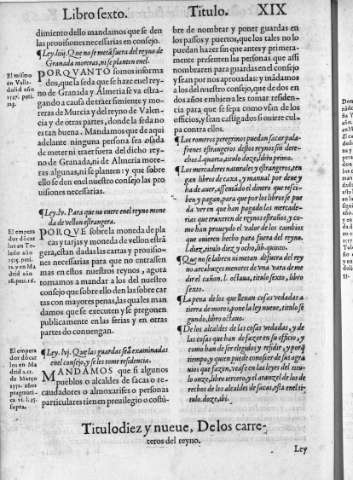 Libro sexto. Titulo. XIX
dimiento dello mandamos que se den
las prouisiones necessarias en consejo.
Ley. lvij. Que no se metã fuera del reyno de
Granada moreras, ni se planten en el.
El mismo
en Valla-
dolid año
PORQVANTO somos informa
dos, que la seda que se haze en el rey-
no de Granada y Almeria se va estra-
gando a causa de traerse simiente y mo-
reras de Murcia y del reyno de Valen-
cia y de otras partes, donde la seda no
es tan buena. Mandamos que de aqui
adelante ninguna persona sea osada
de meter ni traer fuera del dicho rey-
no de Granada, ni de Almeria more-
ras algunas, ni se planten: y que sobre
ello se den en el nuestro consejo las pro
uisiones necessarias.
¶Ley. lv. Para que no entre en el reyno mone
da de vellon estrangera.
El empera
dor dõ car
los en To-
PORQVE sobre la moneda de pla
cas y tarjas y moneda de vellon estrã
gera, estan dadas las cartas y prouisio-
nes necessarias para que no entrassen
mas en estos nuestros reynos, agora
tornamos a mandar a los del nuestro
consejo que sobre ello den las sobre car
tas con mayores penas, las quales man
damos que se executen y se pregonen
publicamente en las ferias y en otras
partes do conuengan.
¶Ley. lvj. Que las guardas seã examinadas
en el consejo, y se les tome residencia.
El empera
dor dõ car
los en Ma
drid
de Março
MANDAMOS que si algunos
pueblos o alcaldes de sacas o re-
caudadores o almoxarifes o personas
particulares tienen preuilegio o costũ-
bre de nombrar y poner guardas en
los passos y puertos, que los tales no lo
puedan hazer sin que antes y primera-
mente presenten las personas que assi
nombraren para guardas en el consejo
y sean por nos aprouadas: y mãdamos
a los del nuestro consejo, que de dos en
dos años embien a les tomar residen-
cia para que se sepa como vsan de los
officios, y sean castigados si ouiere cul-
pa contra ellos.
¶Los romeros peregrinos puedan sacar pala-
frenes estrangeros destos reynos sin dere-
chos. l. quarta, titulo doze, libro primo.
¶Los mercaderes naturales y estrangeros, ten-
gan libro de caxa, y manual por deue y
ha de auer, assentãdo el dinero que resci-
ben y pagan, para que por los libros se pue
da ver en que han pagado las mercade-
rias que traxeren de reynos estraños, y co-
mo han proueydo el valor de los cambios
que ouieren hecho para fuera del reyno.
¶Que no se labren ni metan de fuera del reyno
no arcabuzes menores de vna vara de me
dir el cañon. l. octaua, titulo sexto, libro
sexto.
¶La pena de los que lleuan cosas vedadas a
tierra de moros, pone la ley nueue, titulo se
gundo, libro octauo.
¶De los alcaldes de las cosas vedadas, y de
las cosas que han de fazer en su officio, y
como han de ser elegidos y residir, y por q̃
tiempo, y quien puede conoscer de los agra
uios que fazen
onze, libro tercero, y el aranzel de los de
rechos de los alcaldes de sacas, està en el ti-
tulo. doze, ibi.
Titulo diez y nueue, De los carre-
teros del reyno.
Ley